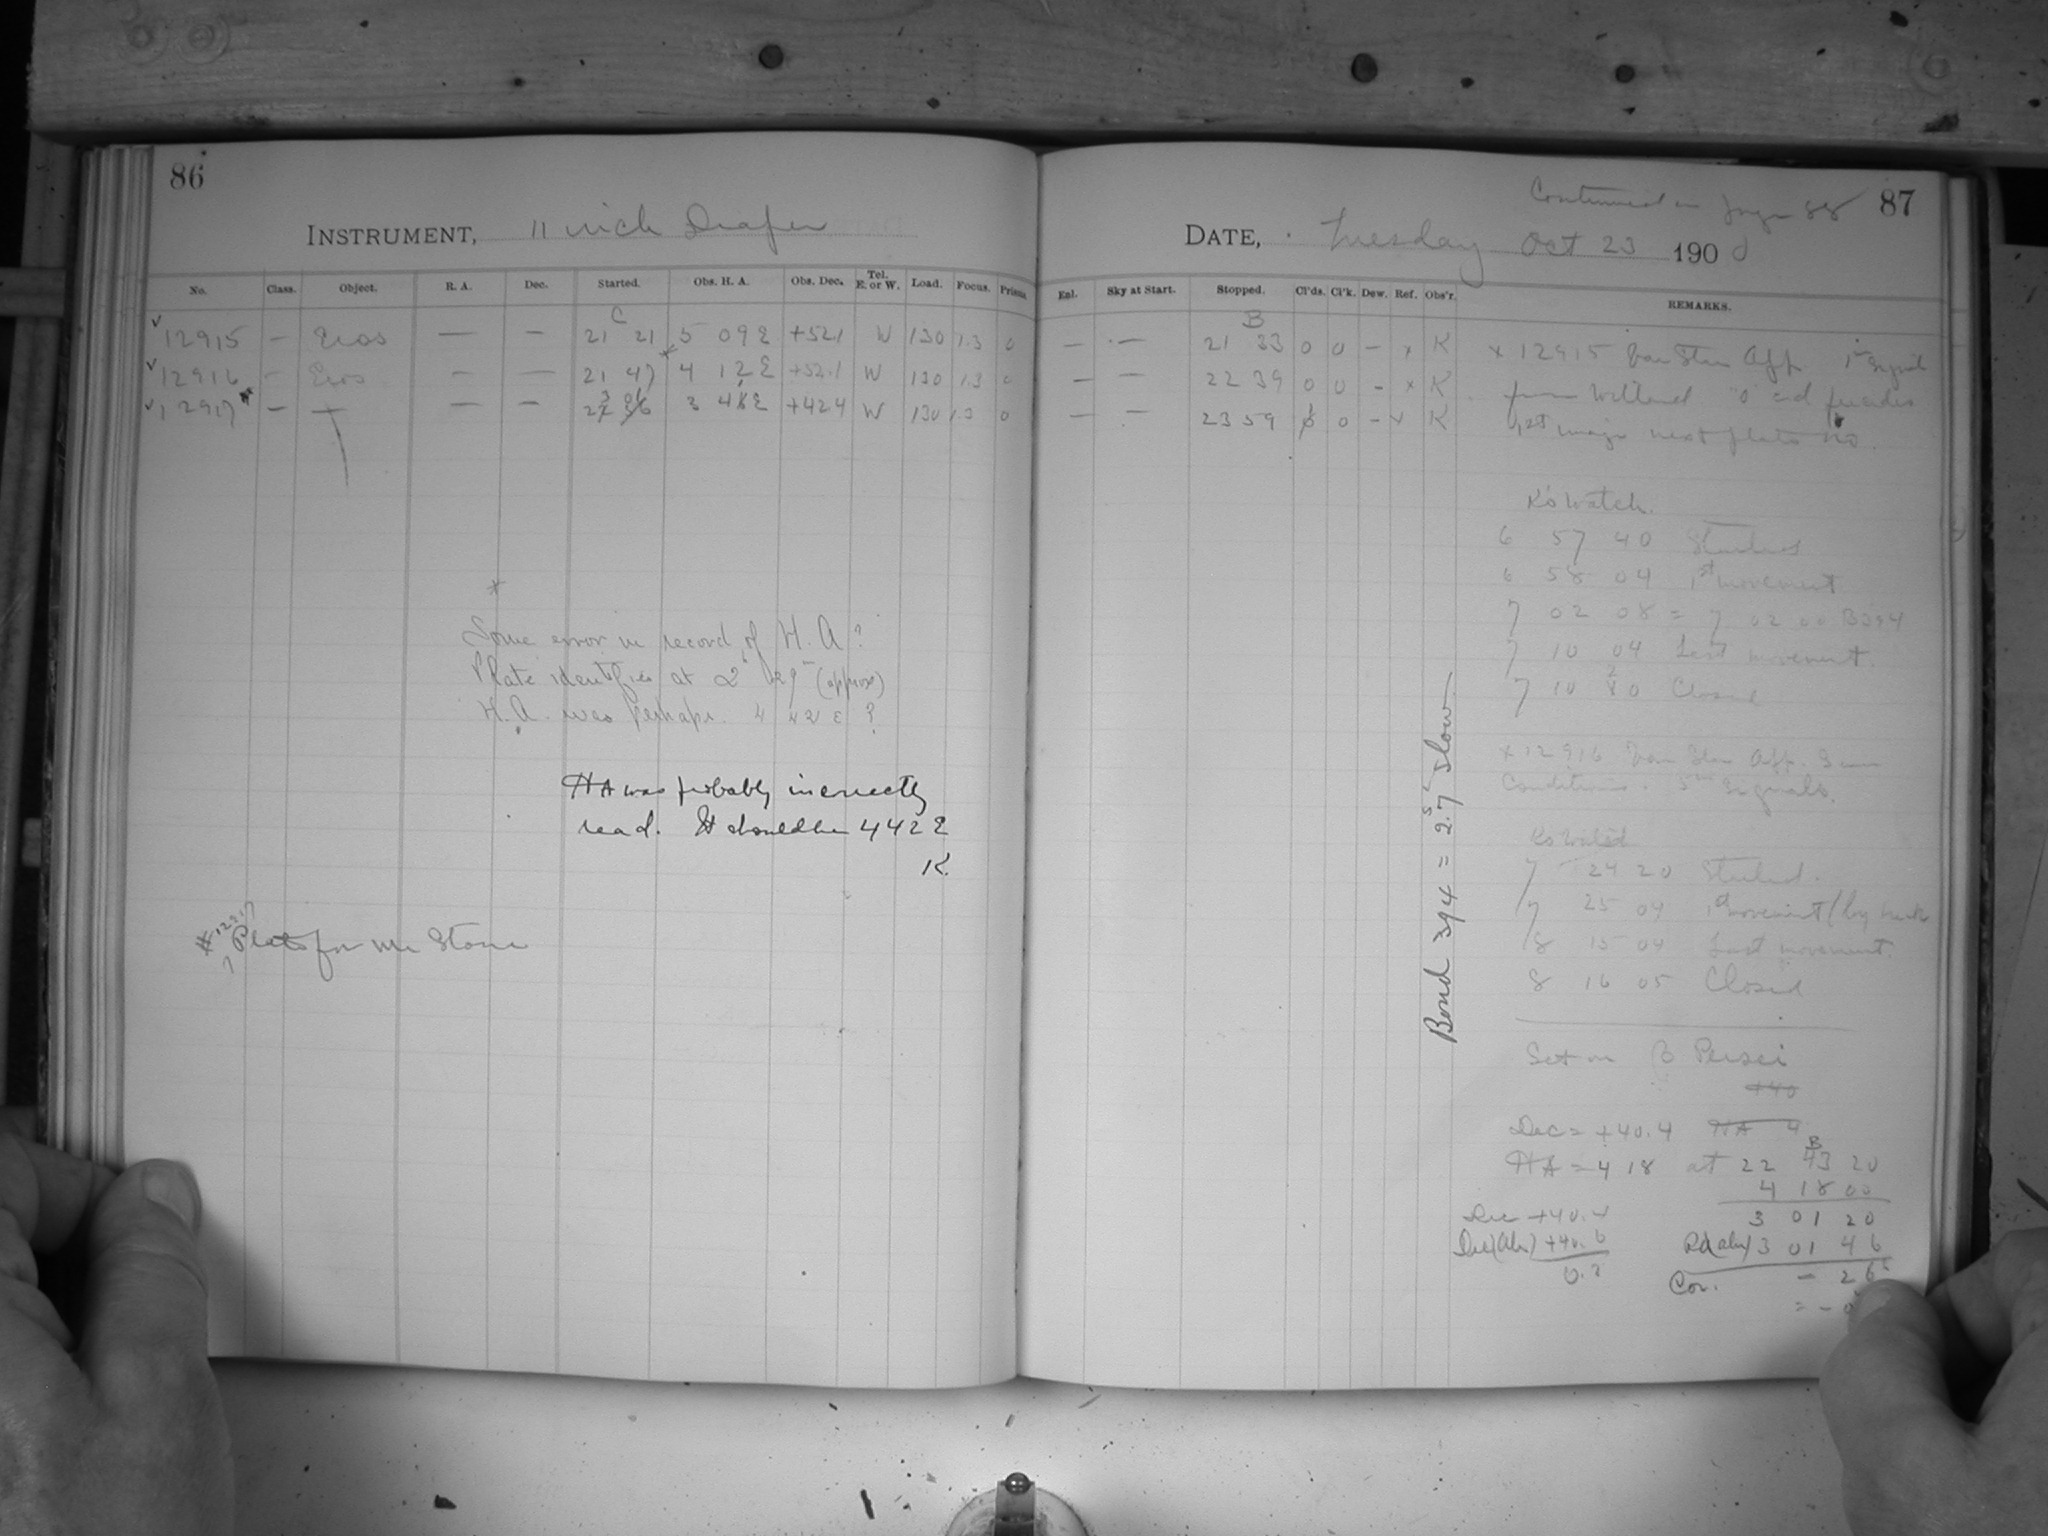 86
INSTRUMENT, 11 inch Draper
No. Class. Object. R. A. Dec. Started. Obs. H. A. Obs. Dec. Tel. E. or W. Load. Focus. Prisms
C
✓ 12915 — Eros — — 21 21 5 09 E +52.1 W 130 1.3 0
✓ 12916 — Eros — — 21 47 * 4 12 E +52.1 W 130 1.3 0
✓ 12917 * — — — 3 48 E +42.4 W 130 1.3 0
*
Some error in record of H. A?
Plate identifies at 2h 29m (approx)
H. A. was perhaps 4 42 E ?
HA was probably incorrectly
read. It should be 4 42 E
K.
* 12917
Plate for Mr Stone
Continued on page 88 87
DATE, Tuesday Oct 23 1900
Enl. Sky at Start. Stopped. Cl'ds. Cl'k. Dew. Ref. Obs'r. REMARKS.
B
— — 21 33 0 0 — x K
— — 22 39 0 0 — x K
— — 23 59 0 — x K
x 12915 App. 1st signal
from Willard "0" and
1st image next plate no.
K's Watch.
6 57 40 Started
6 58 04 1st movement
7 02 08 = 7 02 00 B394
7 10 04 Last movement.
7 10 20 Closed
x 12916 App. Same
Conditions. 5m Signals.
K's Watch
7 24 20 Started.
7 25 04 1st movement (by
8 15 04 Last movement.
8 16 05 Closed
Bond 394 = 2.7s Slow
Set on β Persei
+40
Dec = +40.4 HA 4
B
HA = 4 18 at 22 43 20
4 18 00
3 01 20
Dec +40.4
Dec (Alm) +40.6
0.2
RA (alm) 3 01 46
Cor. - 26s
= - 0